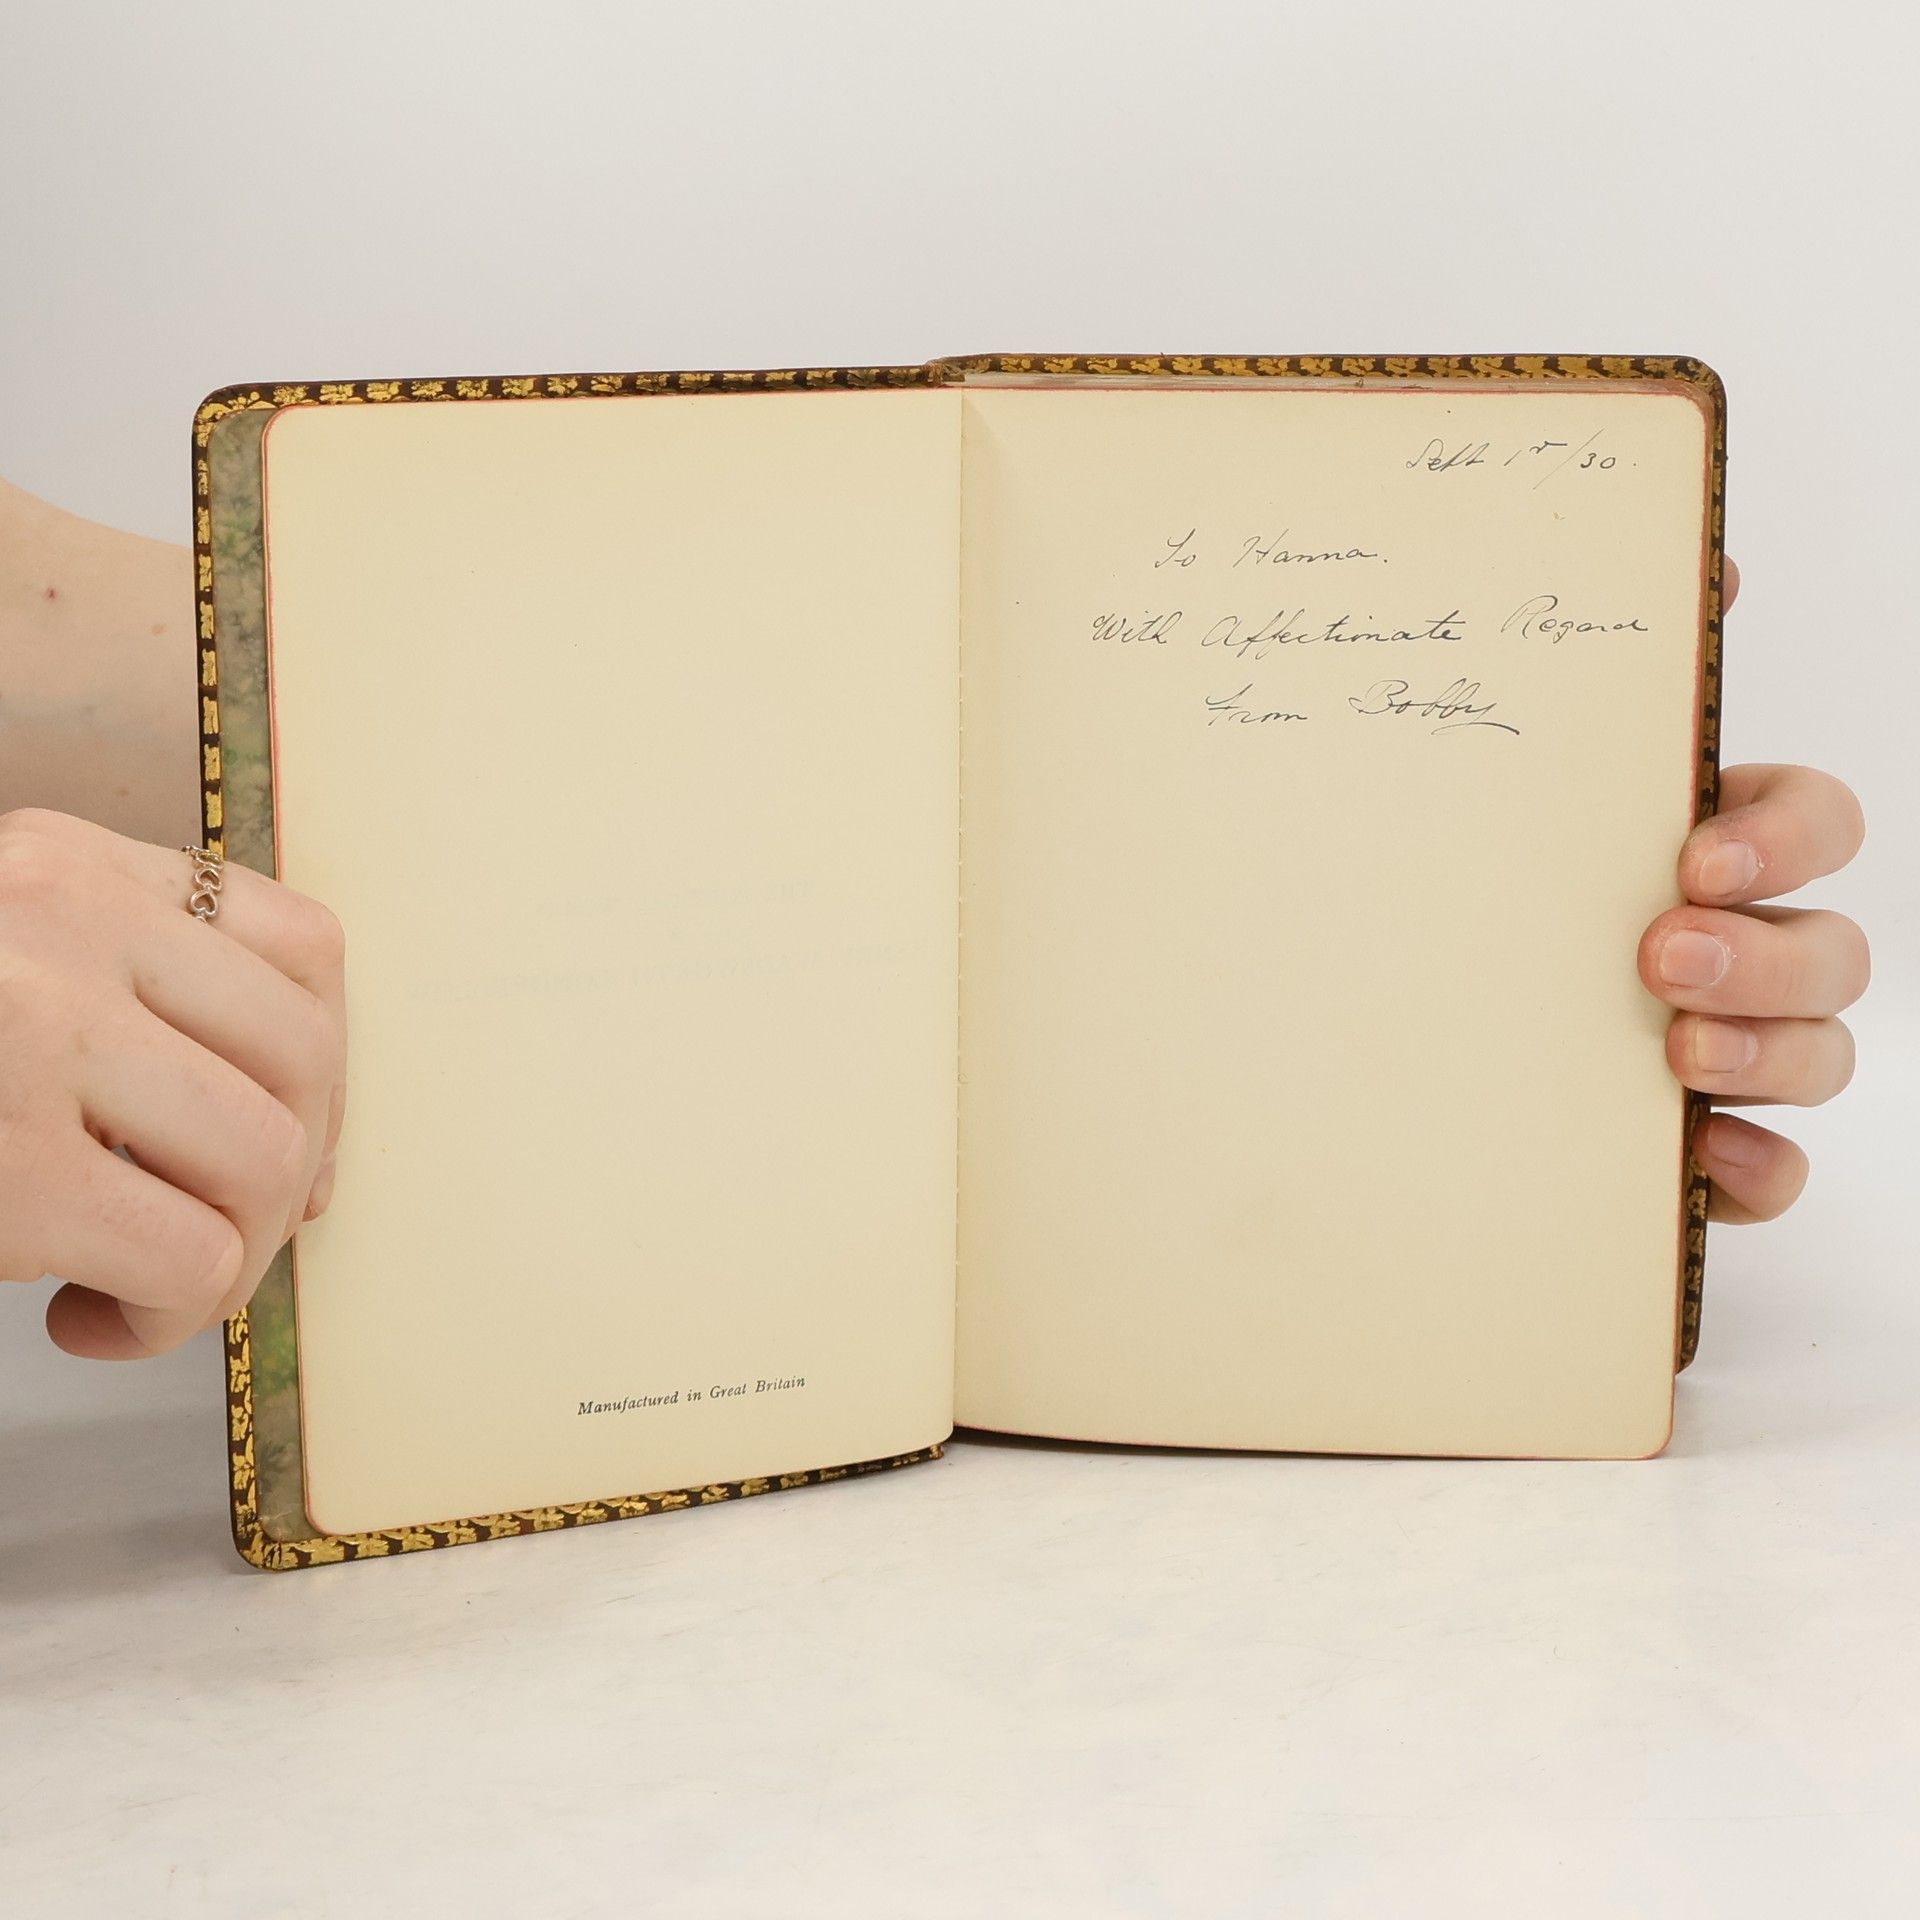 Manufactured in Great Britain
Sept 1st/30.
To Hanna.
With Affectionate Regard
from Bobby